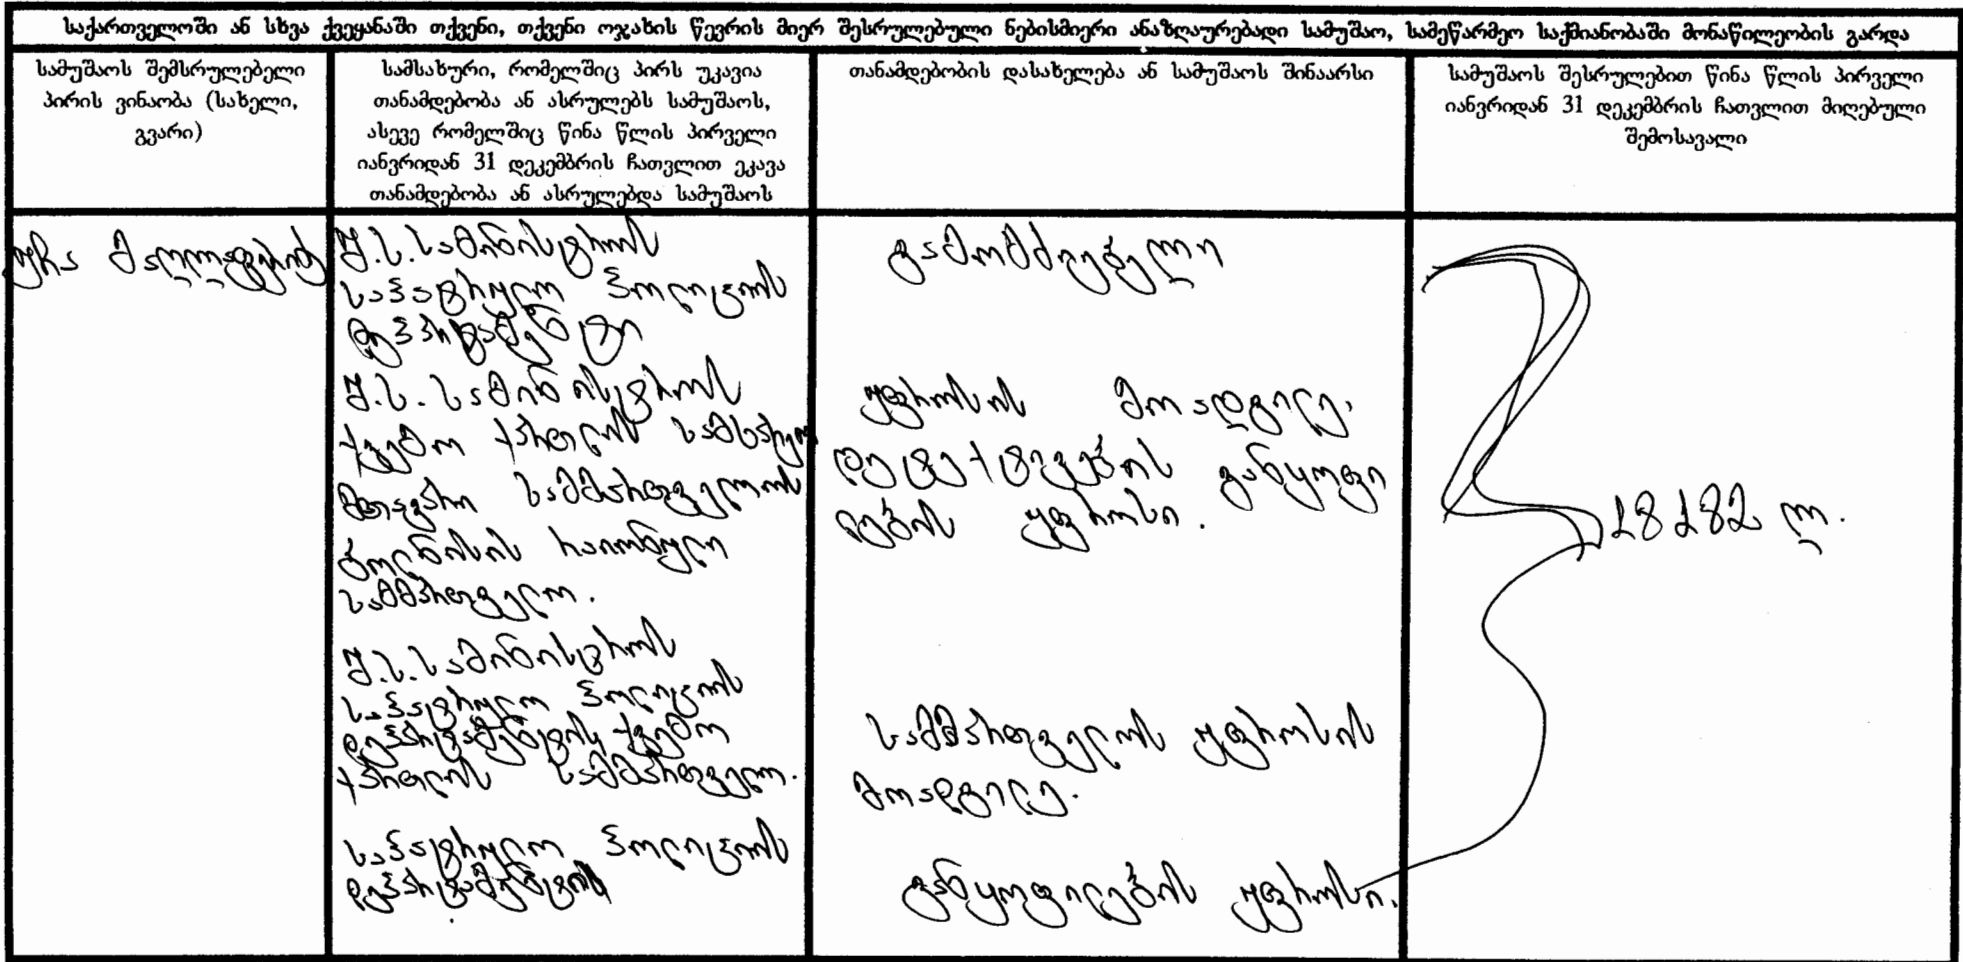 საქართველოში ან სხვა ქვეყანაში თქვენი, თქვენი ოჯახის წევრის მიერ შესრულებული ნებისმიერი ანაზღაურებადი სამუშაო, სამეწარმეო საქმიანობაში მონაწილეობის გარდა
სამუშაოს შემსრულებელი
პირის ვინაობა (სახელი,
გვარი)
სამსახური, რომელშიც პირს უკავია
თანამდებობა ან ასრულებს სამუშაოს,
ასევე რომელშიც წინა წლის პირველი
იანვრიდან 31 დეკემბრის ჩათვლით ეკავა
თანამდებობა ან ასრულებდა სამუშაოს
თანამდებობის დასახელება ან სამუშაოს შინაარსი
სამუშაოს შესრულებით წინა წლის პირველი
იანვრიდან 31 დეკემბრის ჩათვლით მიღებული
შემოსავალი
უჩა
შ.ს.სამინისტროს
საპატრულო პოლიციის
დეპარტამენტი
შ.ს. სამინისტროს
ქვემო ქართლის სამხარეო
მთავარი სამმართველოს
ბოლნისის რაიონული
სამმართველო.
შ.ს.სამინისტროს
საპატრულო პოლიციის
დეპარტამენტის ქვემო
ქართლის სამმართველო.
საპატრულო პოლიციის
დეპარტამენტის
გამომძიებელი
უფროსის მოადგილე.
დეტექტივების განყოფი
ლების უფროსი.
სამმართველოს უფროსის
მოადგილე.
განყოფილების უფროსი.
18182 ლ.